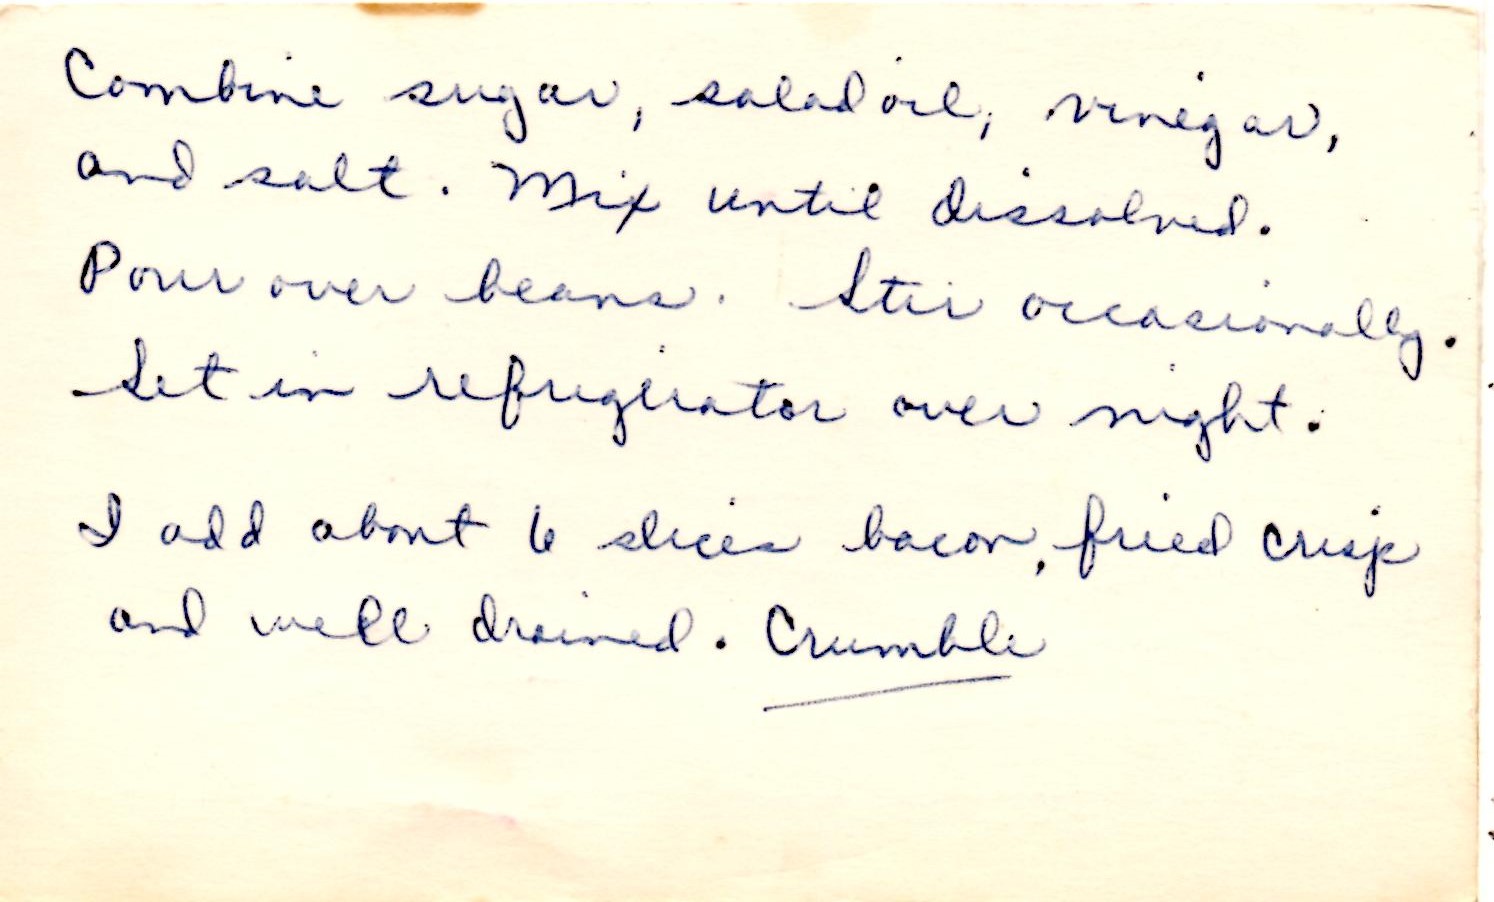 Combine sugar, salad oil, vinegar,
and salt. Mix until dissolved.
Pour over beans. Stir occasionally.
Set in refrigerator over night.
I add about 6 slices bacon, fried crisp
and well drained. Crumble